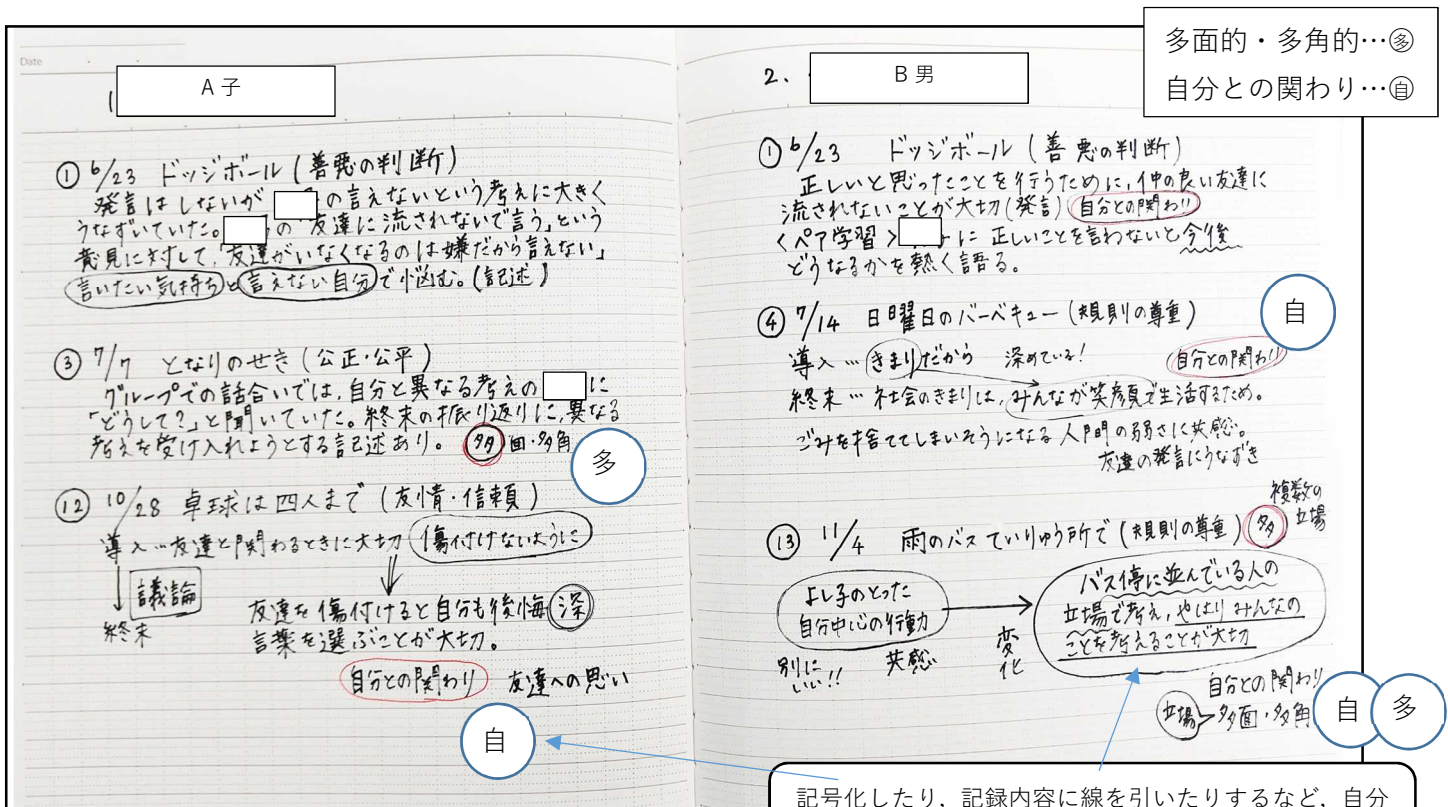 多面的・多角的…㊂
自分との関わり…㊀
Date
1
A子
①6/23 ドッジボール(善悪の判断)
発言はしないが の言えないという考えに大きく
うなずいていた。 の"友達に流されないで言う」という
意見に対して、友達がいなくなるのは嫌だから言えない」
言いたい気持ちと言えない自分で悩む。(記述)
③7/7 となりのせき(公正・公平)
グループでの話合いでは、自分と異なる考えの に
「どうして?」と聞いていた。終末の振り返りに、異なる
考えを受け入れようとする記述あり。 多面・多角
多
⑫10/28 卓球は四人まで(友情・信頼)
導入…友達と関わるときに大切 傷付けないように
議論
終末
友達を傷付けると自分も後悔 深
言葉を選ぶことが大切。
自分との関わり 友達への思い
自
2.
B男
①6/23 ドッジボール(善悪の判断)
正しいと思ったことを行うために、仲の良い友達に
流されないことが大切(発言) 自分との関わり
<ペア学習> に 正しいことを言わないと今後
どうなるかを熱く語る。
④7/14 日曜日のバーベキュー(規則の尊重)
自
導入…きまりだから 深めている! 自分との関わり
終末…社会のきまりは、みんなが笑顔で生活するため。
ごみを捨ててしまいそうになる人間の弱さに共感。
友達の発言にうなずき
⑬11/4 雨のバスていりゅう所で(規則の尊重) 多 複数の立場
よし子のとった
自分中心の行動
別にいい!! 共感
変化
バス停に並んでいる人の
立場で考え、やはりみんなの
ことを考えることが大切
自分との関わり
立場 多面・多角
自 多
記号化したり，記録内容に線を引いたりするなど，自分